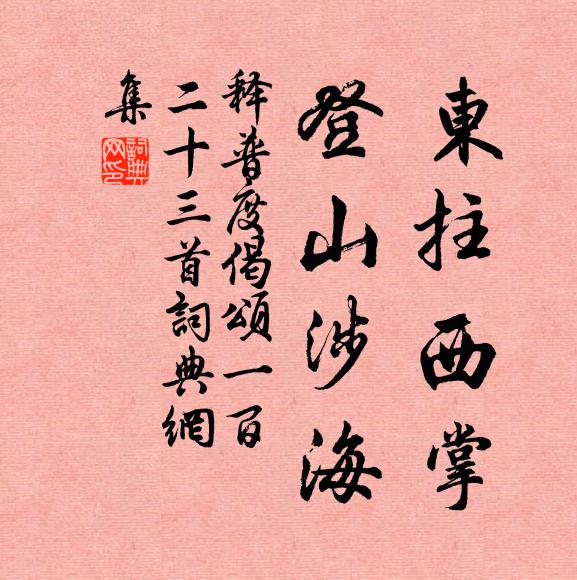 東拄西掌
登山涉海
释普度偈頌一百
二十三首詞典網
集
詞典网印